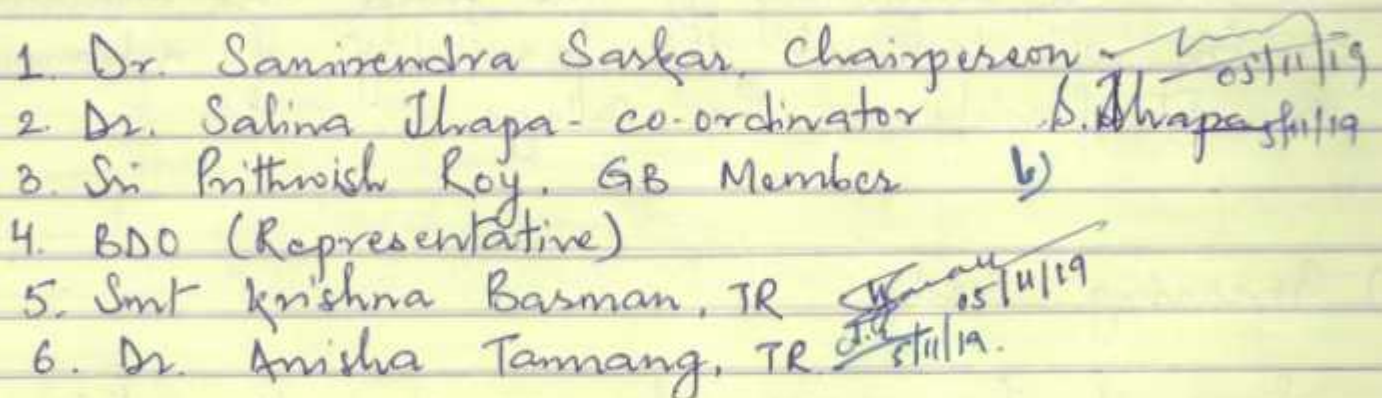 1. Dr. Samirendra Sarkar, Chairperson - 05/11/19
2. Dr. Salina Thapa - co-ordinator S. Thapa 5/11/19
3. Sri Prithwish Roy, GB Member
4. BDO (Representative)
5. Smt Krishna Basman, TR 05/11/19
6. Dr. Anisha Tamang, TR 5/11/19.